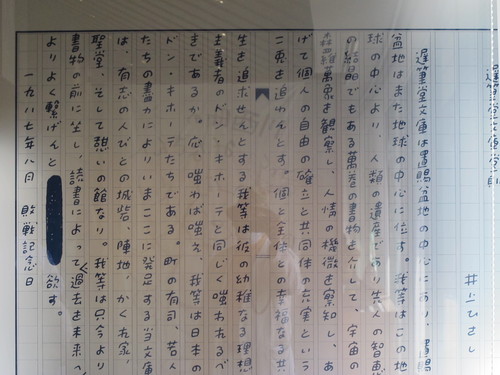 遅筆堂文庫堂則
井上ひさし
遅筆堂文庫は置賜盆地の中心にあり、置賜
盆地はまた地球の中心に位す。我等はこの地
球の中心より、人類の遺産であり先人の智恵
の結晶でもある萬巻の書物を介して、宇宙の
森羅萬象を観察し、人情の機微を察知し、あ
げて個人の自由の確立と共同体の充実という
二兎を追わんとす。個と全体との幸福なる共
生を追求せんとする我等は彼の幼稚なる理想
主義者のドン・キホーテと同じく嗤われるべ
きであるか。応、嗤わば嗤え、我等は日本の
ドン・キホーテたちである。町の有司、若人
たちの尽力によりいまここに発足する当文庫
は、有志の人びとの城砦、陣地、かくれ家、
聖堂、そして憩いの館なり。我等は只今より
書物の前に坐し、読書によって、過去を未来へ
よりよく繋げんと欲す。
一九八七年八月 敗戦記念日